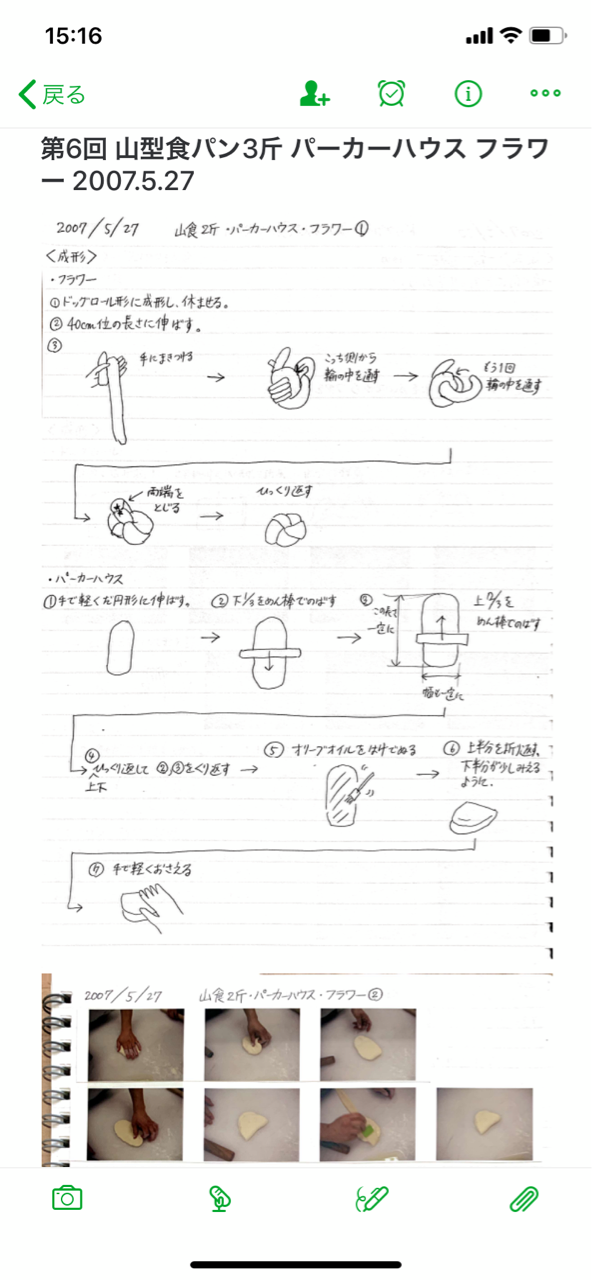 15:16
戻る
第6回 山型食パン3斤 パーカーハウス フラワ
ー 2007.5.27
2007/5/27 山食2斤・パーカーハウス・フラワー①
〈成形〉
・フラワー
①ドッグロール形に成形し、休ませる。
②40cm位の長さに伸ばす。
③
手にまきつける
こっち側から
輪の中を通す
もう1回
輪の中を通す
両端を
とじる
ひっくり返す
・パーカーハウス
①手で軽くだ円形に伸ばす。
②下1/3をめん棒でのばす
③
この長さ
一定に
上2/3を
めん棒でのばす
幅も一定に
④
ひっくり返して②,③をくり返す
上下
⑤オリーブオイルをはけでぬる
⑥上半分を折り返す、
下半分が少しみえる
ように。
⑦手で軽くおさえる
2007/5/27 山食2斤・パーカーハウス・フラワー②